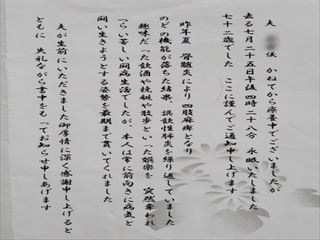 夫 儀 かねてから療養中でございましたが
去る七月二十五日午後四時二十八分 永眠いたしました
七十二歳でした ここに謹んでご通知申し上げます
昨年夏 脊髄炎により四肢麻痺となり
のどの機能が落ちた結果、誤飲性肺炎を繰り返していました
趣味だった飲酒や麻雀や散歩といった娯楽を 突然奪われ
つらい苦しい闘病生活でしたが、本人は常に前向きに病気と
闘い生きようとする姿勢を最期まで貫いてくれました
夫が生前にいただきました御厚情に深く感謝申し上げると
ともに 失礼ながら書中をもってお知らせ申しあげます